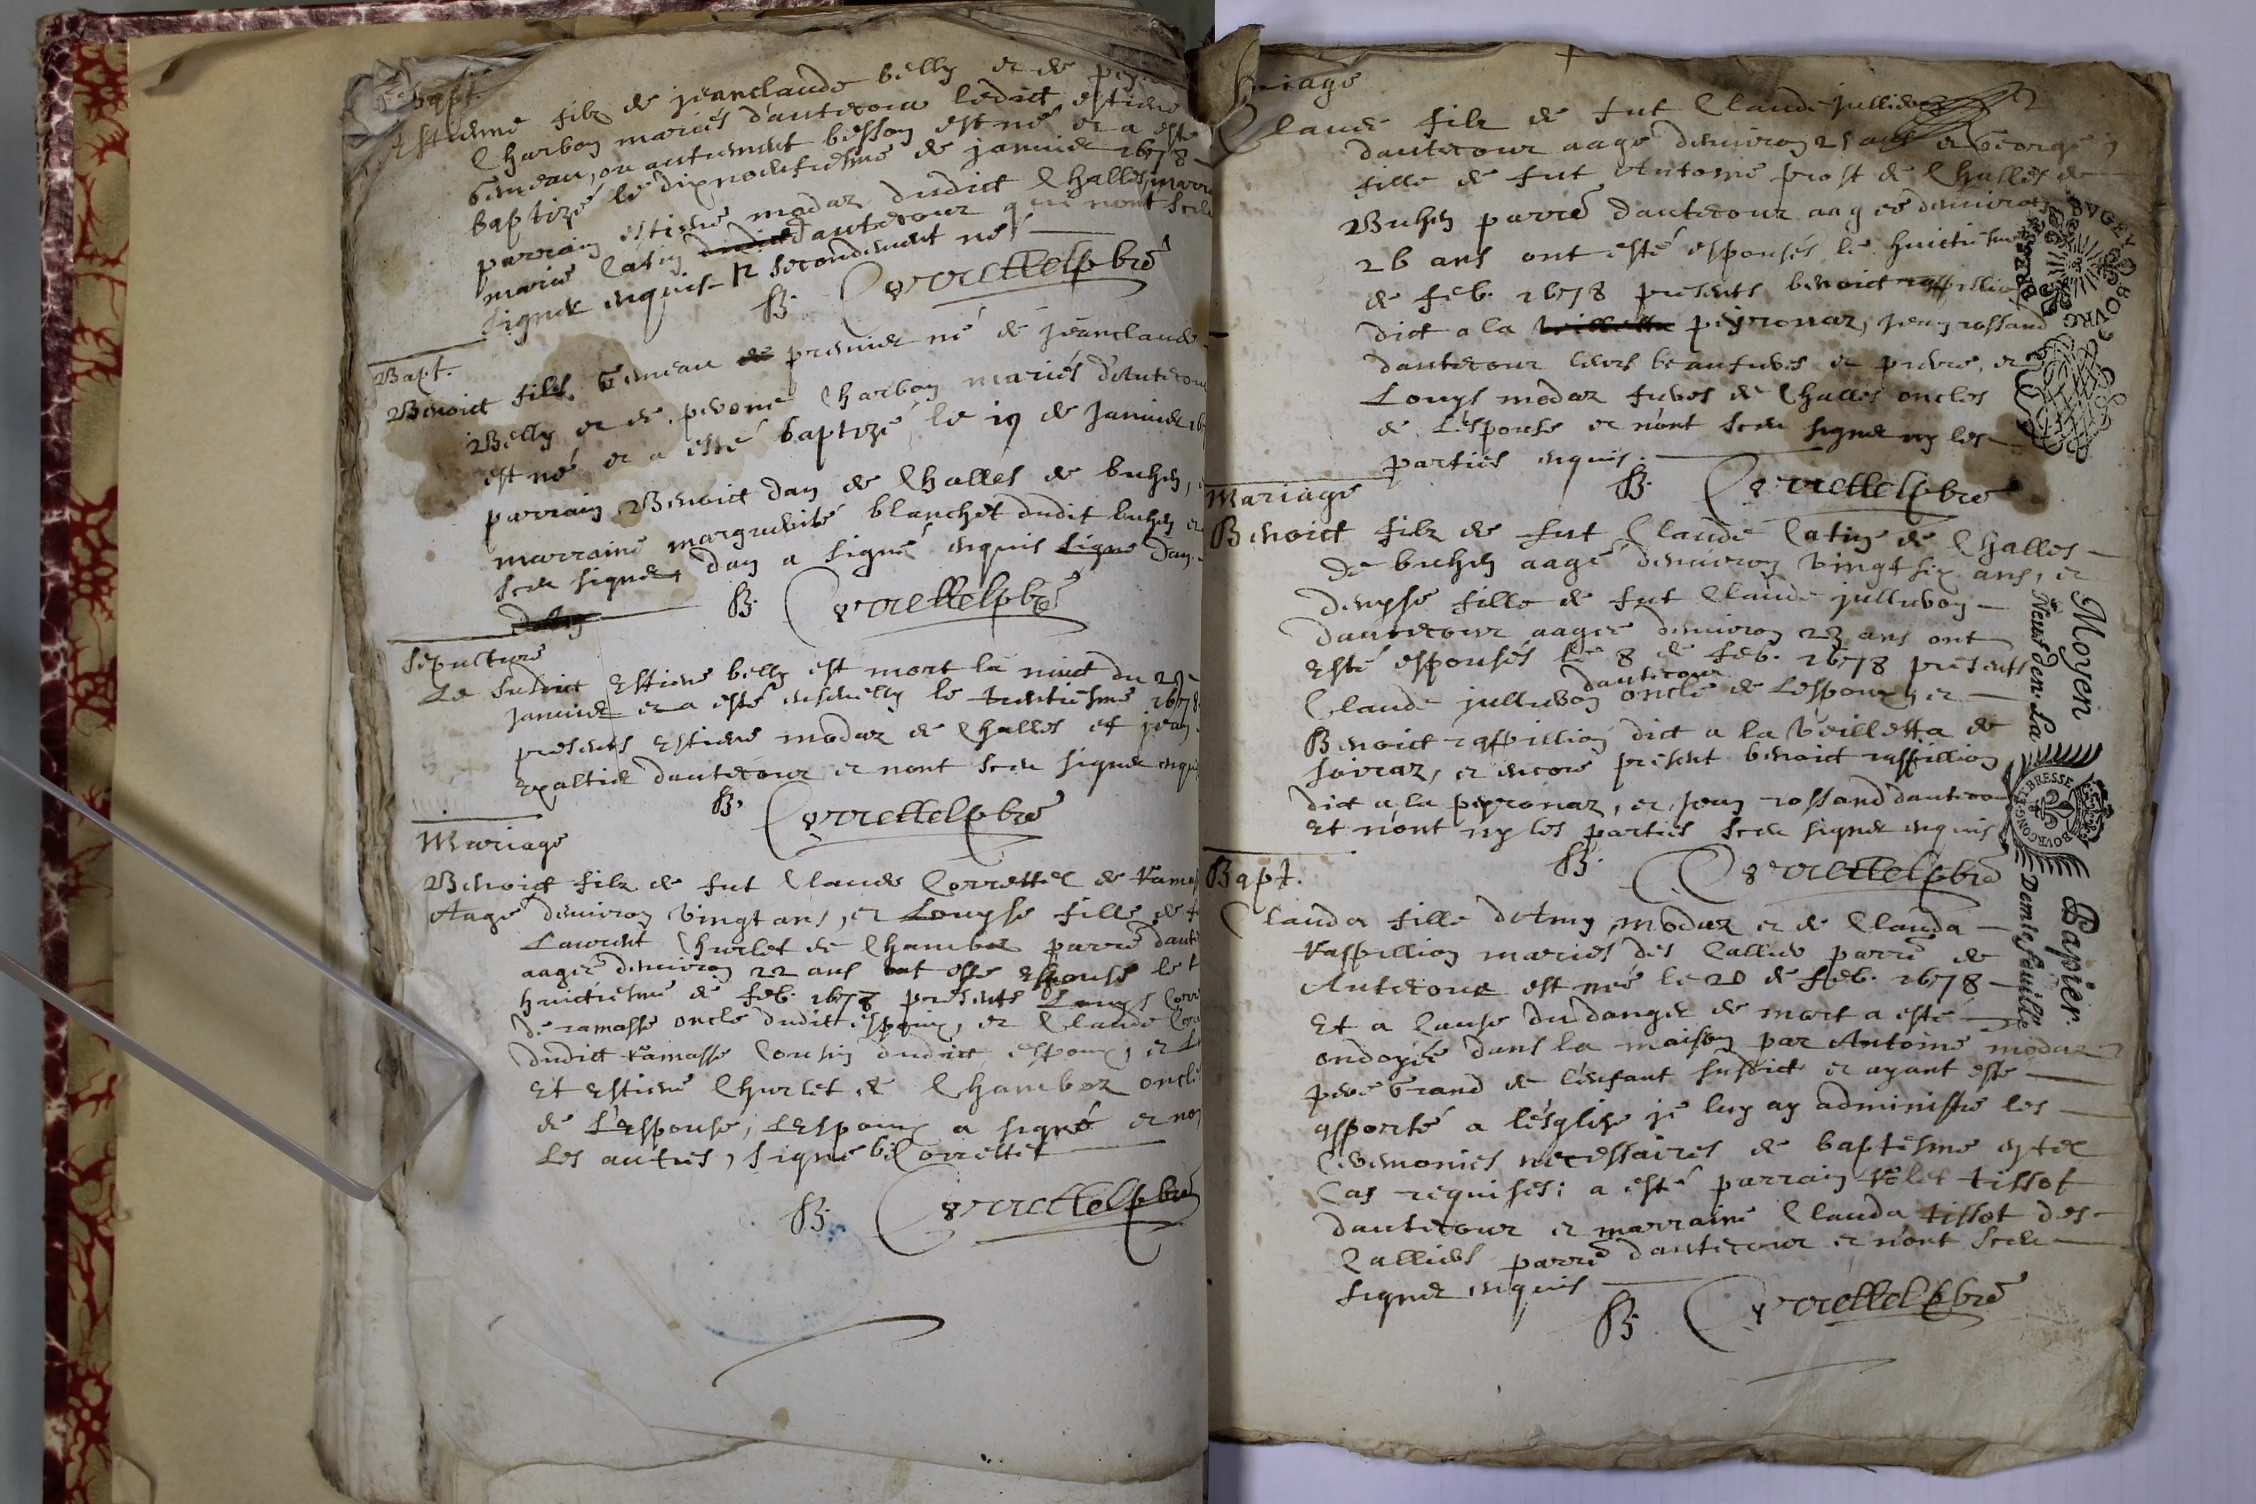 Bapt.
Estienne filz de jeanclaude belly et de
Charbon mariés d'autecour ledict estiene
Gemeau, ou autrement besson est né et a esté
baptizé le dixneufiesme de janvier 1678
parrain estiene modaz dudict Challes, marr
marie Catin dautecour qui nont sceu
signer enquis et secondement né
B. Correttel pbre
Bapt.
Benoict filz Gemeau premier né de jeanclaude
Belly et de pevone Charbon mariés d'autecou
est né et a esté baptizé le 19 de janvier 16
parrain Benoict dan de Challes de buhen,
marraine marguerite blanchet dudit buhen et
sceu signer, dan a signé enquis signé dan
B. Correttel pbre
Sepulture
Le susdict Estiene belly est mort la nuict du 29
janvier et a esté ensevelly le trentiesme 1678
presents Estiene modaz de Challes et jean
dautecour et nont sceu signer enquis
B. Correttel pbre
Mariage
Benoict filz de fut Claude Correttel de Ramas
Aagé denviron vingt ans, et Louyse fille de f
Laurent Churlet de Chamboz parre daute
aagée denviron 22 ans ont esté espousé le
huictiesme de feb. 1678 presents Louys Corre
de ramasse oncle dudict espoux, et Claude Corre
dudict Ramasse Cousin dudict espoux, et
Et Estiene Churlet de Chamboz oncle
de L'espouse, Lespoux a signé et non
Les autres, signé b. Correttel
B. Correttel pbre
riage
Claude filz de fut Claude jullieron
dautecour aagé denviron 25 ans et George
fille de fut Antoine prost de Challes de
Buhen parre dautecour aagée denviron
26 ans ont esté espousés le huictiesme
de feb. 1678 presents benoict raffillion
dict a la peyronaz, jean rossand
dautecour leurs beaufreres et prevre, et
Louys modaz fuvos de Challes oncles
de L'espouse et n'ont sceu signer ny les
parties enquis.
B. Correttel pbre
Mariage
Benoict filz de fut Claude Catin de Challes
de buhen aagé denviron vingt six ans, et
denyse fille de fut Claude julluron
dautecour aagée denviron 23 ans ont
Esté espousés le 8 de feb. 1678 presents
dautecour
Claude julluron oncle de Lespoux, et
Benoict raffillion dict a la Veilletta de
soiraz, et encore present benoict raffillion
dict a la peyronaz, et jean rossand dauteco
Et n'ont ny les parties sceu signer enquis
B. Correttel pbre
Bapt.
Clauda fille dAtmy modaz et de Clauda
Raffillion mariés des Calliers parre de
Autecour est née le 20 de feb. 1678
Et a Cause du danger de mort a esté
ondoyée dans la maison par Antoine modaz
pere Grand de l'enfant susdict et ayant esté
apporté a lésglise je luy ay administré les
Ceremonies necessaires de baptesme en tel
Cas requises; a esté parrain tissot
dautecour et marraine Clauda tissot des
Calliers parre dautecour et n'ont sceu
signer enquis
B. Correttel pbre
BRESSE BVGEY BOVRG
Moyen Papier.
Neuf den. La Demie feuille
BOVRGONG. ET BRESSE